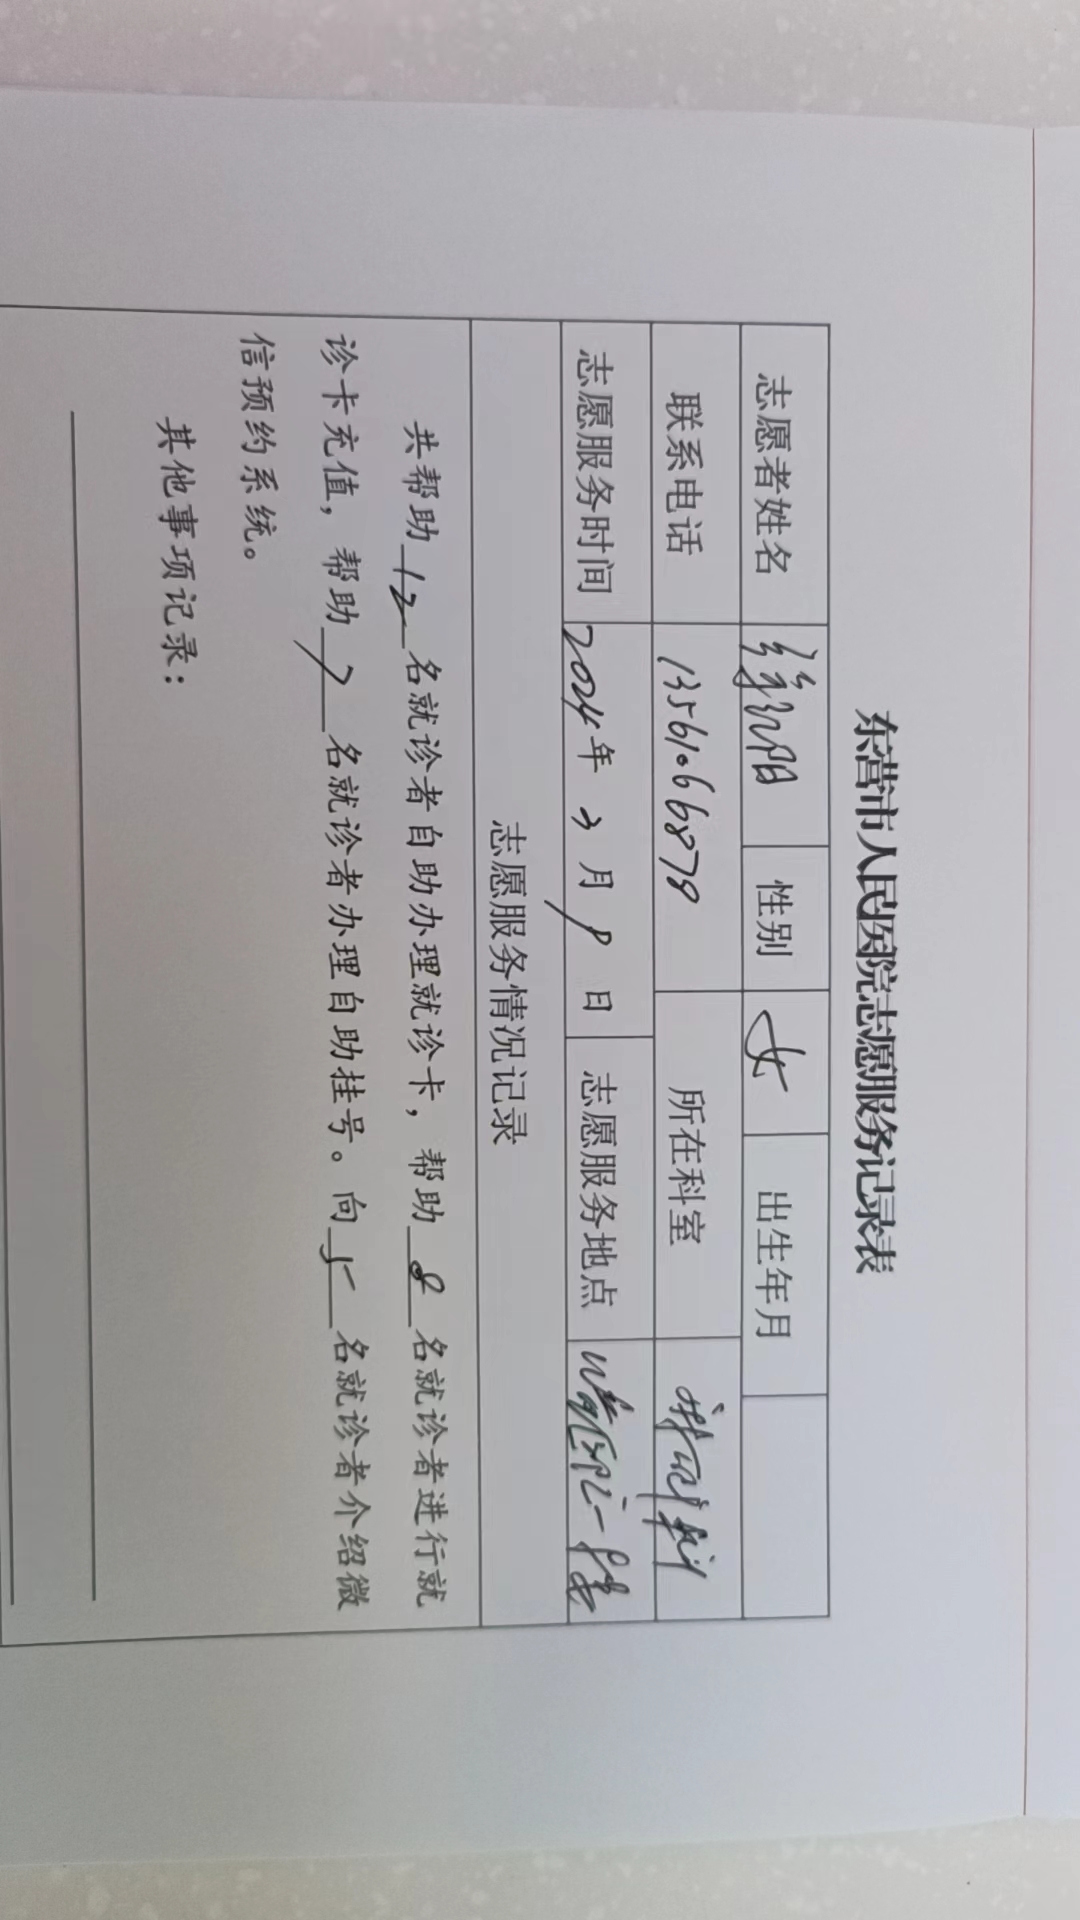 东营市人民医院志愿服务记录表
志愿者姓名 性别 女 出生年月
联系电话 13561066879 所在科室
志愿服务时间 2024年 3月 日 志愿服务地点
志愿服务情况记录
共帮助12名就诊者自助办理就诊卡，帮助8名就诊者进行就
诊卡充值，帮助7名就诊者办理自助挂号。向5名就诊者介绍微
信预约系统。
其他事项记录：